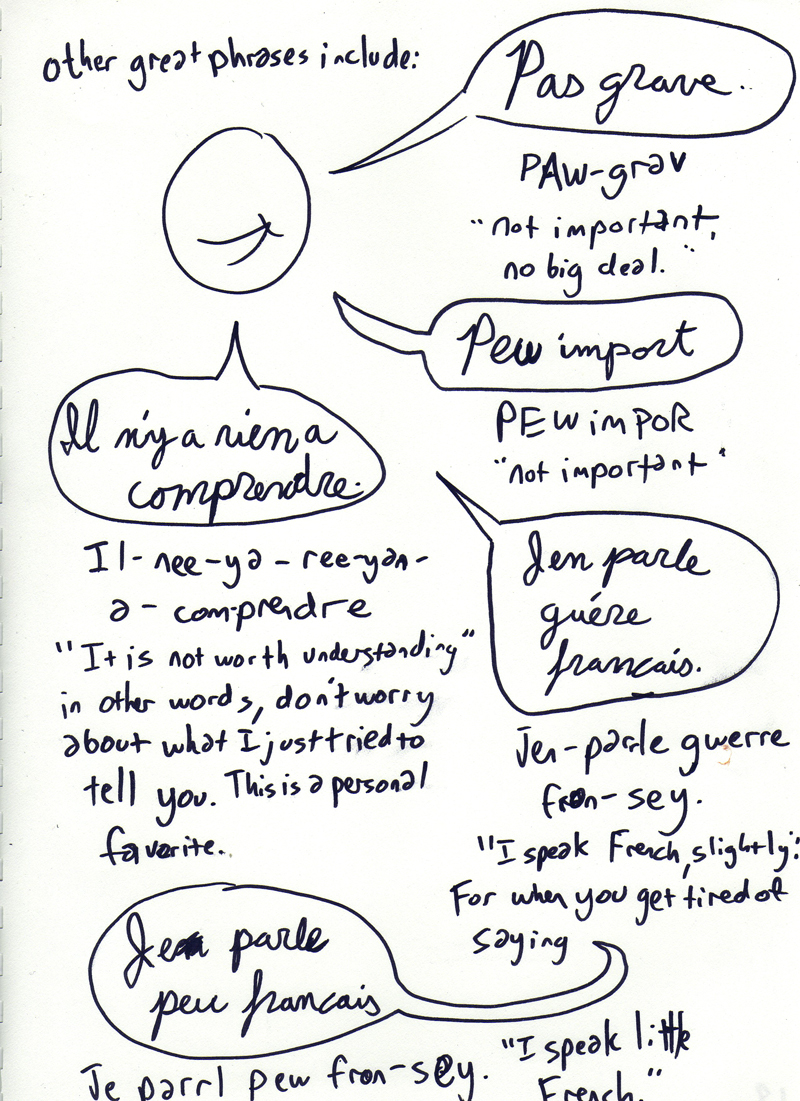 other great phrases include:
Pas grave.
PAW-grav
"not important,
no big deal."
Pew import
PEW imPOR
"not important"
Il n'y a rien a
comprendre.
Il-nee-ya-ree-yan-
a-comprendre
"It is not worth understanding"
in other words, don't worry
about what I just tried to
tell you. This is a personal
favorite.
Jen parle
guére
francais.
Jen-parle gwerre
fron-sey.
"I speak French, slightly".
For when you get tired of
saying
Je parle
peu francais
Je parrl pew fron-sey.
"I speak little
French."